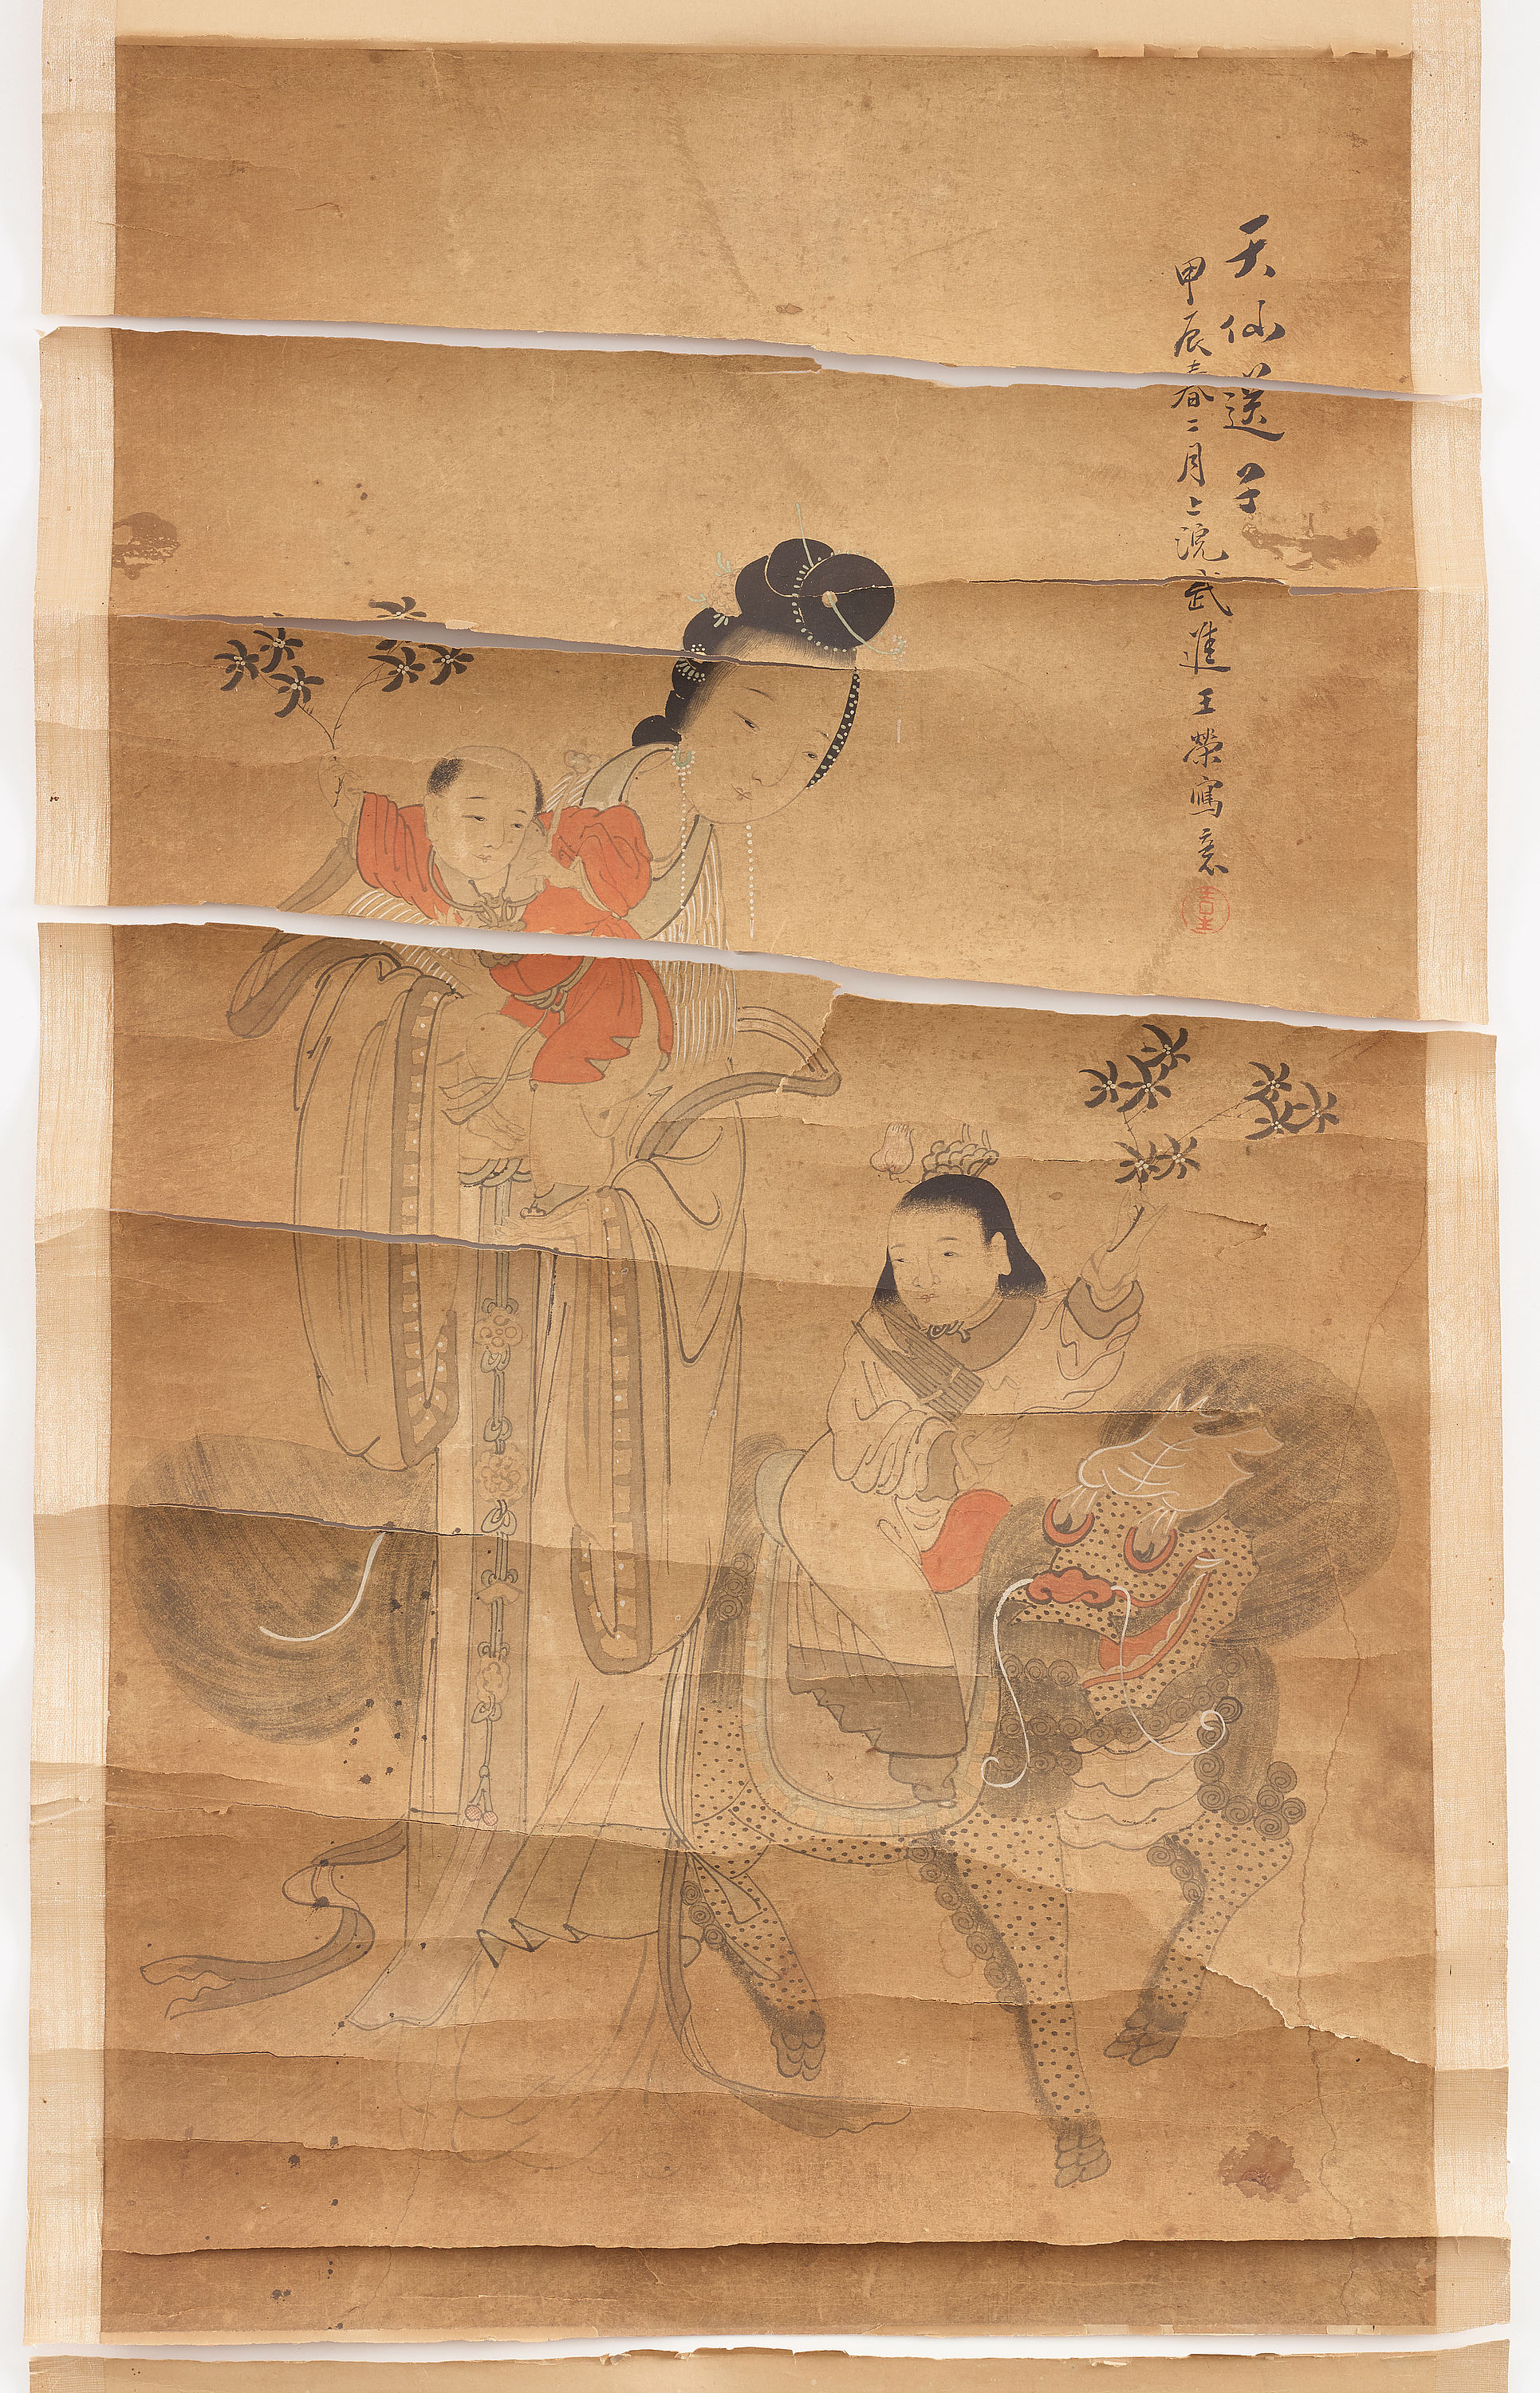 天仙送子
甲辰春二月上浣武進王榮寫意